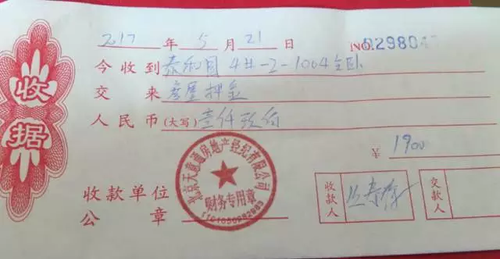 收据
2017 年 5 月 21 日 NO.
今收到 泰和园 4#-2-1004 主卧
交来 房屋押金
人民币(大写) 壹仟玖佰
¥ 1900
收款单位
公章
北京天嘉通房地产经纪有限公司
财务专用章
收款人
交款人